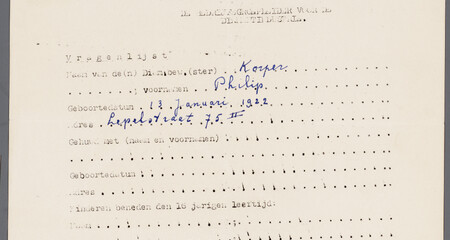 Vragenlijst
Naam van de(n) Dienbew.(ster) Korper
voornamen Philip
Geboortedatum 13 Januari 1922
Adres Lepelstraat 75 II
Gehuwd met (naam en voornamen)
Geboortedatum
Adres
Kinderen beneden den 16 jarigen leeftijd:
Naam